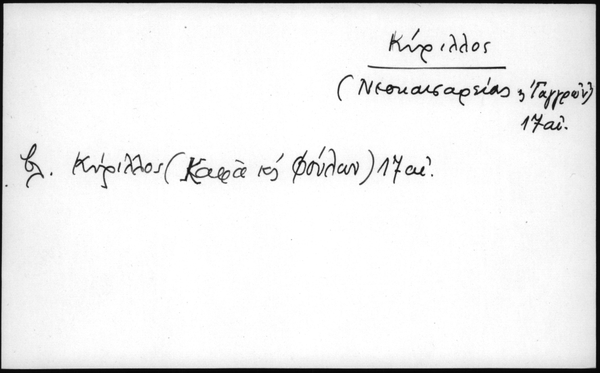 Κύριλλος
(Νεοκαισαρείας ἢ Γαγγρῶν)
17 αἰ.
βλ. Κύριλλος (Καφᾶ κ̀ Φούλων) 17 αἰ.